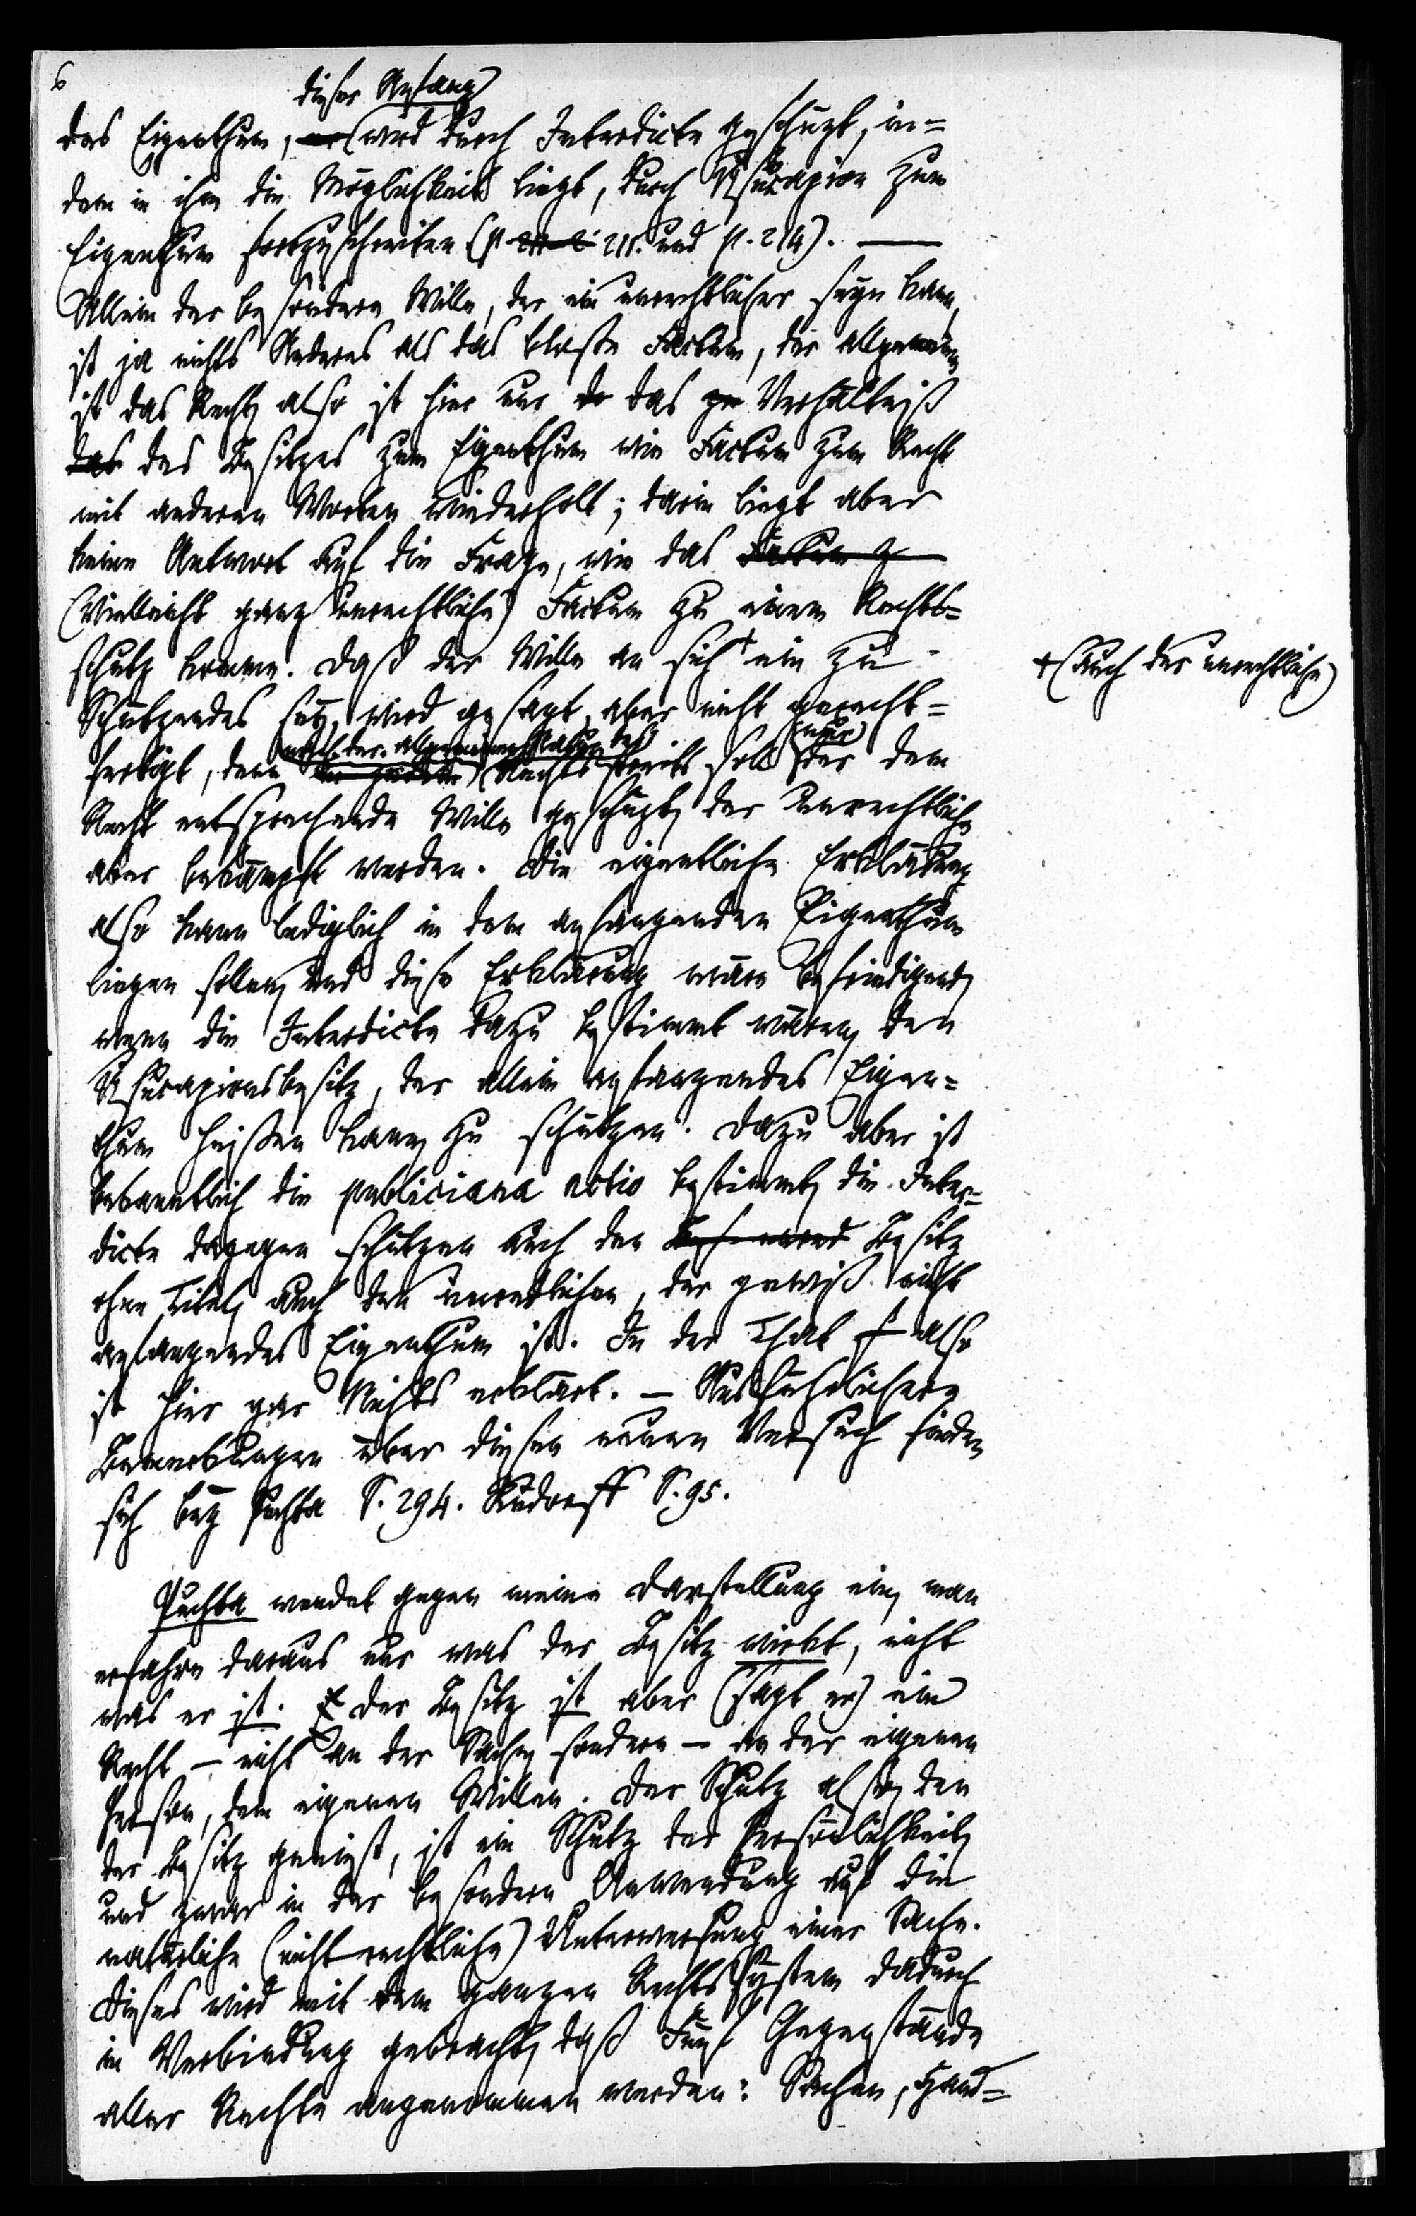 6
dieser Anfang
des Eigenthums, wird durch Interdicte geschüzt, in-
dem in ihm die Möglichkeit liegt, durch Usucapion zum
Eigenthum fortzuschreiten (p. 211. und p. 214). —
Allein der besondere Wille, der ein unrechtlicher seyn kann,
ist ja nichts Anderes als das bloße Factum, der allgemeine
ist das Recht, also ist hier nur das Verhältniß
das des Besitzes zum Eigenthum wie Factum zum Recht
mit anderen Worten wiederholt; darin liegt aber
keine Antwort auf die Frage, wie das Factum z
(vielleicht ganz unrechtliche) Factum zu einem Rechts-
schutz komme. Daß der Wille an sich + ein zu
+ (auch der unrechtliche)
Schützendes sey, wird gesagt, aber nicht gerecht-
nach der allgemeinen Natur des
nur
fertigt, denn Rechts soll der dem
Recht entsprechende Wille geschüzt, der unrechtliche
aber bekämpft werden. Die eigentliche Erklärung
also kann lediglich in dem anfangenden Eigenthum
liegen sollen, und diese Erklärung wäre befriedigend,
wenn die Interdicte dazu bestimmt wären, den
Usucapionsbesitz, der allein anfangendes Eigen-
thum heißen kann, zu schützen. Dazu aber ist
bekanntlich die publiciana actio bestimmt, die Inter-
dicte dagegen schützen auch den Besitz
ohne Titel, auch den unredlichen, der gewiß nicht
anfangendes Eigenthum ist. In der That also
ist hier gar Nichts erklärt. — Ausführlichere
Bemerkungen über diesen neuen Versuch finden
sich bey Puchta S. 294. Rudorff S. 95.
Puchta wendet gegen meine Darstellung ein, man
erfahre daraus nur was der Besitz wirkt, nicht
was er ist. Der Besitz ist aber (sagt er) ein
Recht – nicht an der Sache, sondern – an der eigenen
Person, dem eigenen Willen. Der Schutz also, den
der Besitz genießt, ist ein Schutz der Persönlichkeit,
und zwar in der besondern Anwendung auf die
natürliche (nicht rechtliche) Unterwerfung einer Sache.
Dieses wird mit dem ganzen Rechtssystem dadurch
in Verbindung gebracht, daß Fünf Gegenstände
aller Rechte angenommen werden: Sachen, Hand-